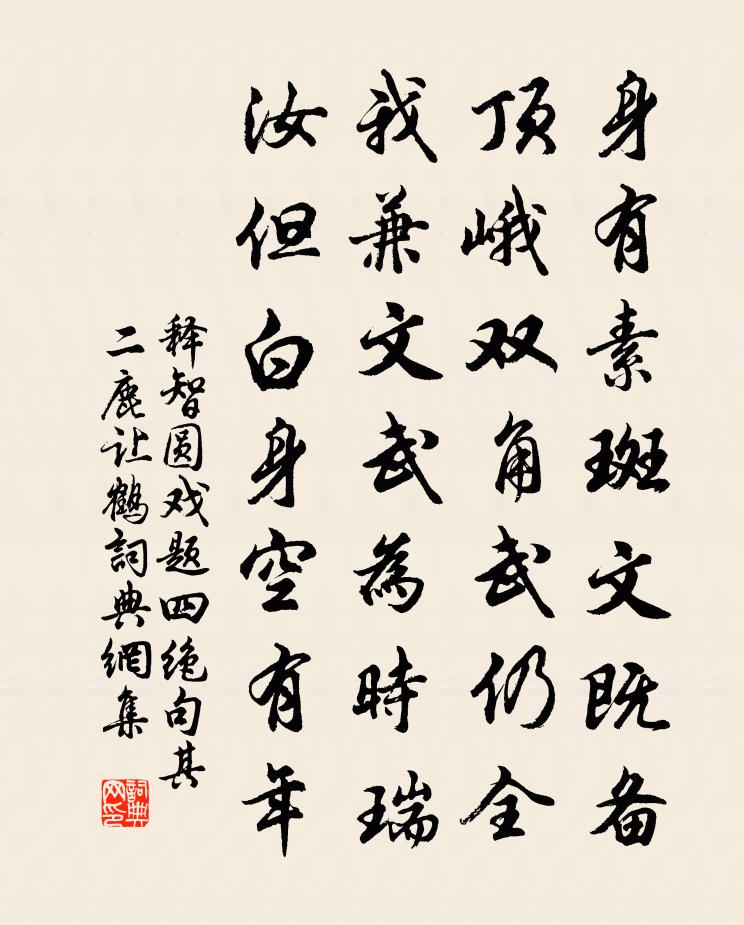 身有素斑文既备
顶峨双角武仍全
我兼文武為時瑞
汝但白身空有年
释智圆戏题四绝句其
二鹿让鹤詞典網集
詞典
网印